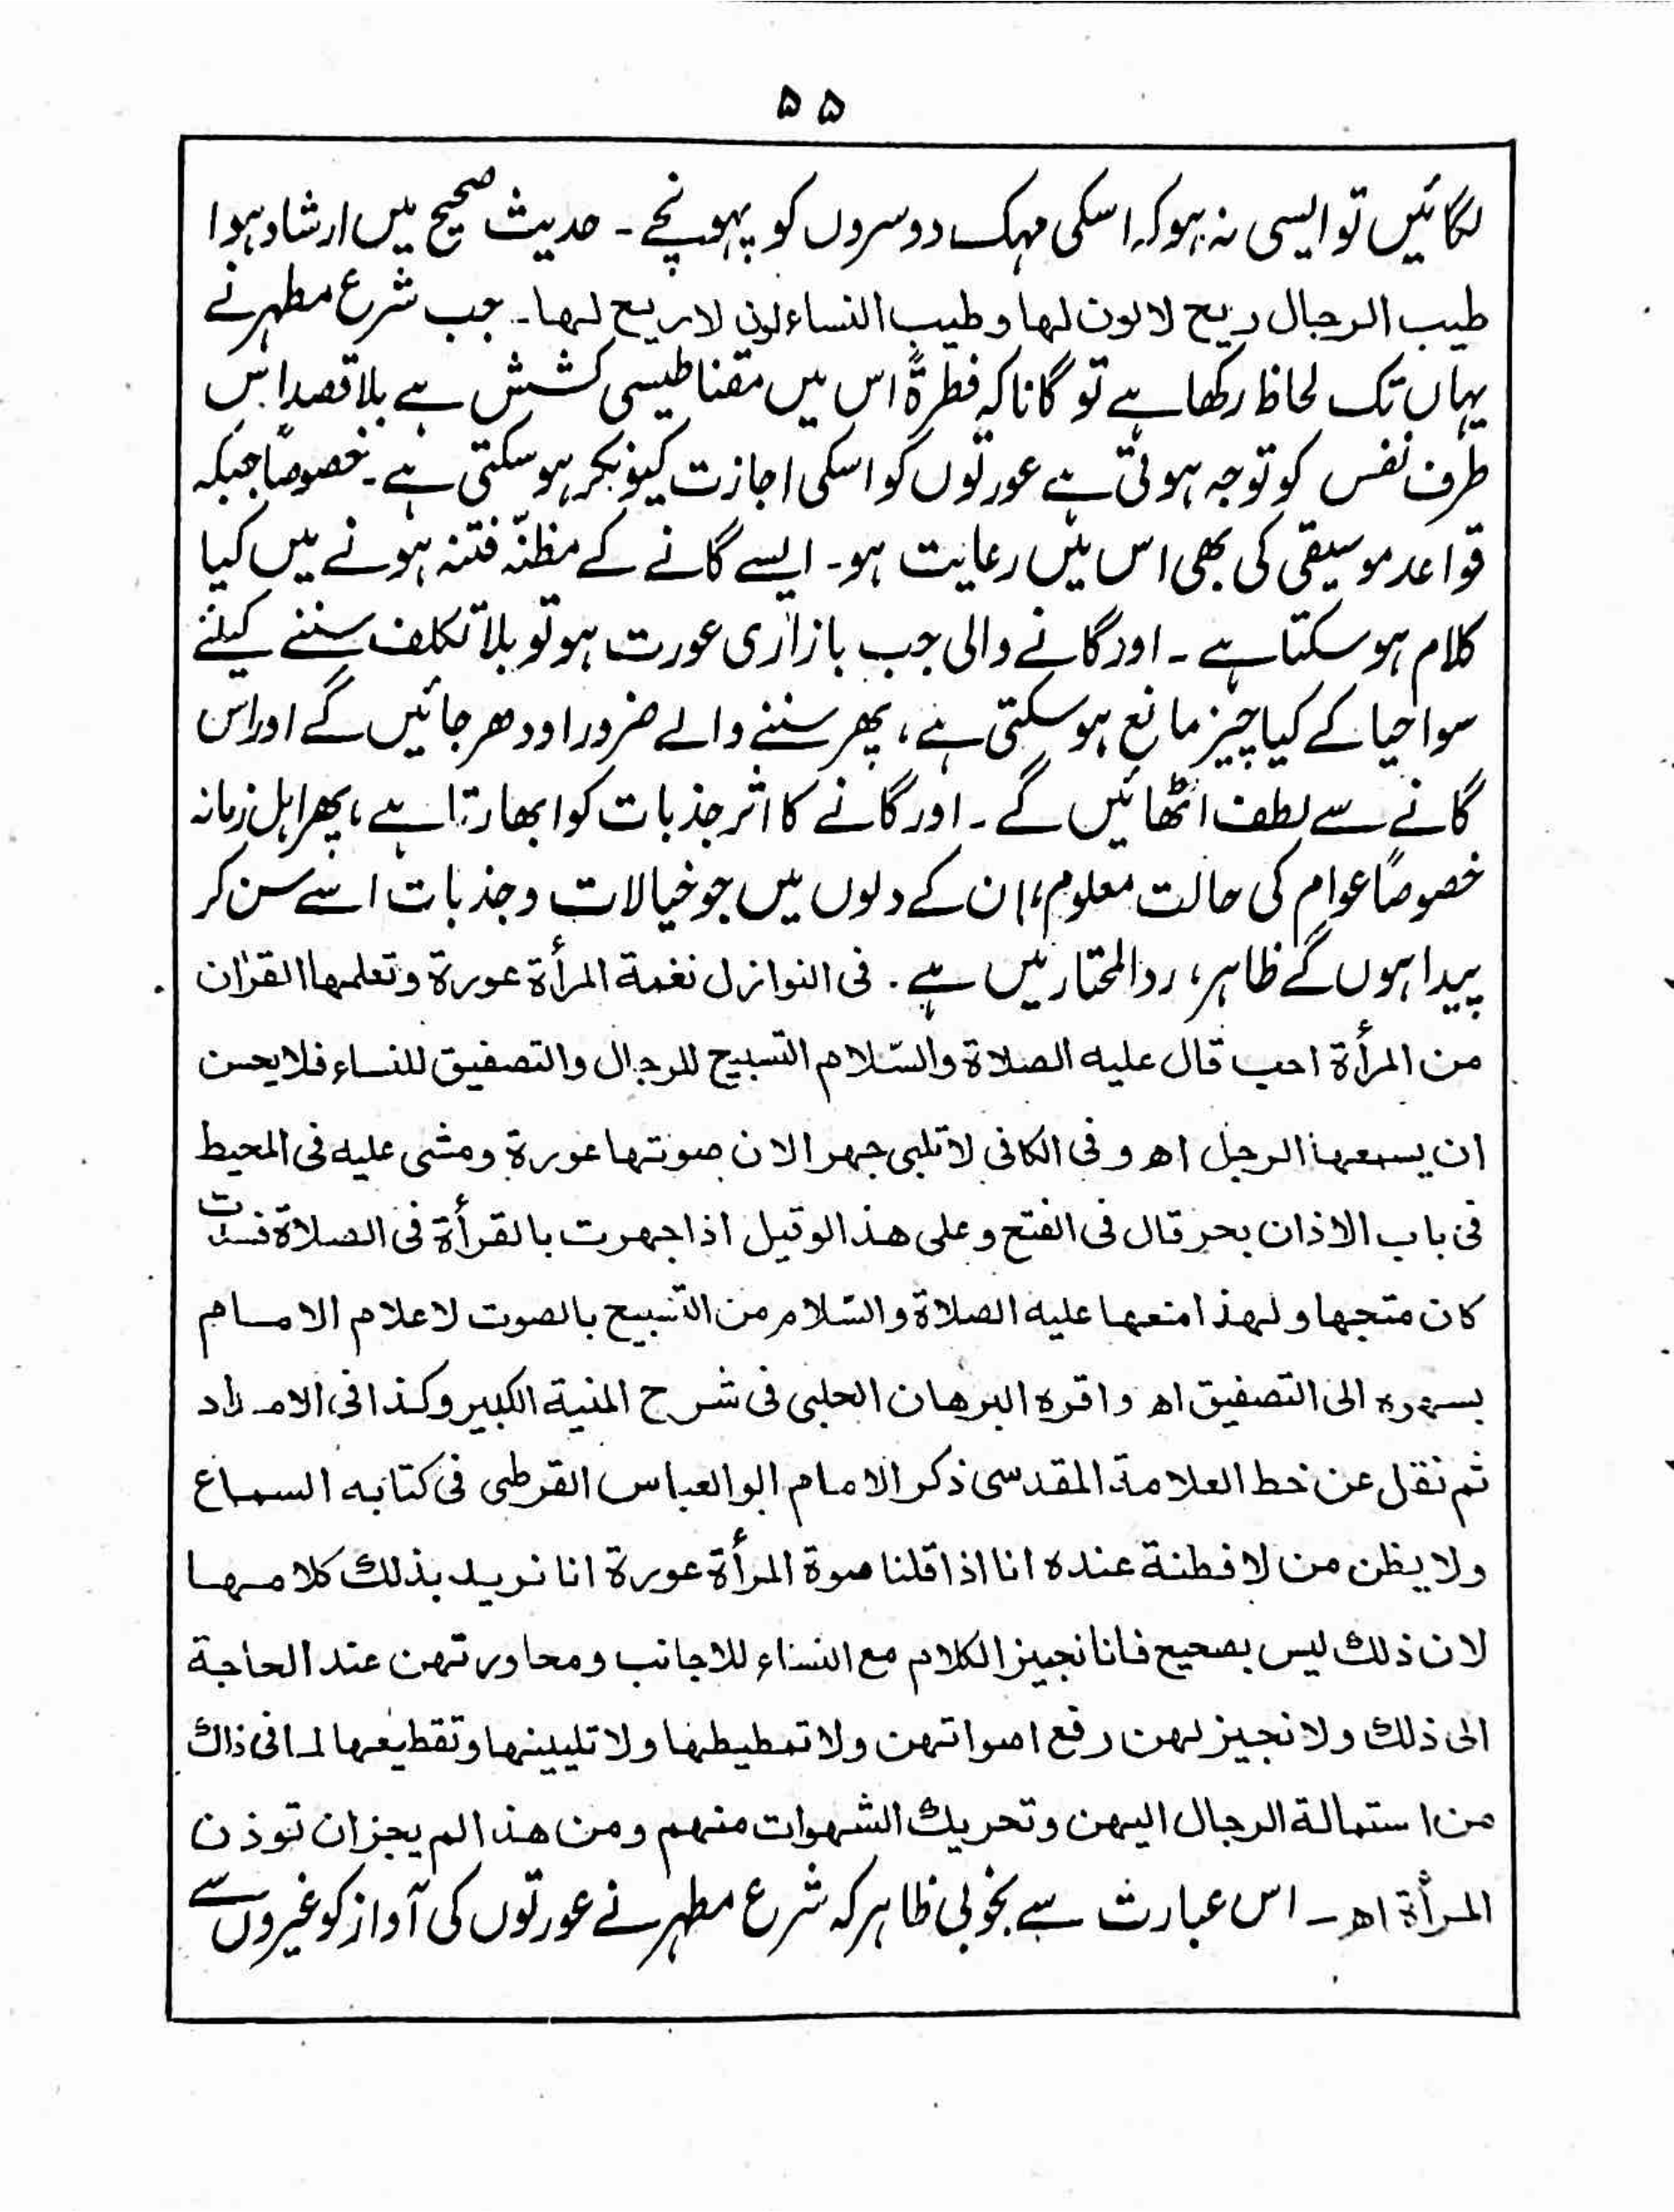 ۵۵
لگائیں تو ایسی نہ ہو کہ اسکی مہک دوسروں کو پہونچے ۔ حدیث صحیح میں ارشاد ہوا
طیب الرجال ریح لا لون لها و طیب النساء لون لا ریح لها ۔ جب شرع مطہر نے
یہاں تک لحاظ رکھا ہے تو گانا کہ فطرۃً اس میں مقناطیسی کشش ہے بلا قصد اس
طرف نفس کو توجہ ہوتی ہے عورتوں کو اسکی اجازت کیونکر ہو سکتی ہے ۔ خصوصاً جبکہ
قواعد موسیقی کی بھی اس میں رعایت ہو ۔ ایسے گانے کے مظنّہ فتنہ ہونے میں کیا
کلام ہو سکتا ہے ۔ اور گانے والی جب بازاری عورت ہو تو بلا تکلف سننے کیلئے
سوا حیا کے کیا چیز مانع ہو سکتی ہے ، پھر سننے والے ضرور اودھر جائیں گے اور اس
گانے سے لطف اٹھائیں گے ۔ اور گانے کا اثر جذبات کو ابھارتا ہے ، پھر اہل زمانہ
خصوصاً عوام کی حالت معلوم ، ان کے دلوں میں جو خیالات و جذبات اسے سن کر
پیدا ہوں گے ظاہر ، رد المحتار میں ہے ۔ فی النوازل نغمة المرأة عورة وتعلمها القرٰان
من المرأة احب قال علیه الصلاة والسّلام التسبیح للرجال والتصفیق للنساء فلا یحسن
ان یسمعها الرجل اھ و فی الکافی لا تلبی جهرا لان صوتها عورة ومشی علیه فی المحیط
فی باب الاذان بحر قال فی الفتح و علی هذا لو قیل اذا جهرت بالقرأة فی الصلاة فسدت
کان متجها و لهذا منعها علیه الصلاة والسّلام من التسبیح بالصوت لاعلام الامام
بسهوہ الی التصفیق اھ و اقرہ البرهان الحلبی فی شرح المنیة الکبیر وکذا فی الامداد
ثم نقل عن خط العلامة المقدسی ذکر الامام ابو العباس القرطبی فی کتابه السماع
ولا یظن من لا فطنة عندہ انا اذا قلنا صوة المرأة عورة انا نرید بذلك کلامها
لان ذلك لیس بصحیح فانا نجیز الکلام مع النساء للاجانب ومحاورتهن عند الحاجة
الی ذلك ولا نجیز لهن رفع اصواتهن ولا تمطیطها ولا تلیینها وتقطیعها لما فی ذاك
من استمالة الرجال الیهن وتحریك الشهوات منهم ومن هذا لم یجز ان توذن
المرأة اھ ۔ اس عبارت سے بخوبی ظاہر کہ شرع مطہر نے عورتوں کی آواز کو غیروں سے